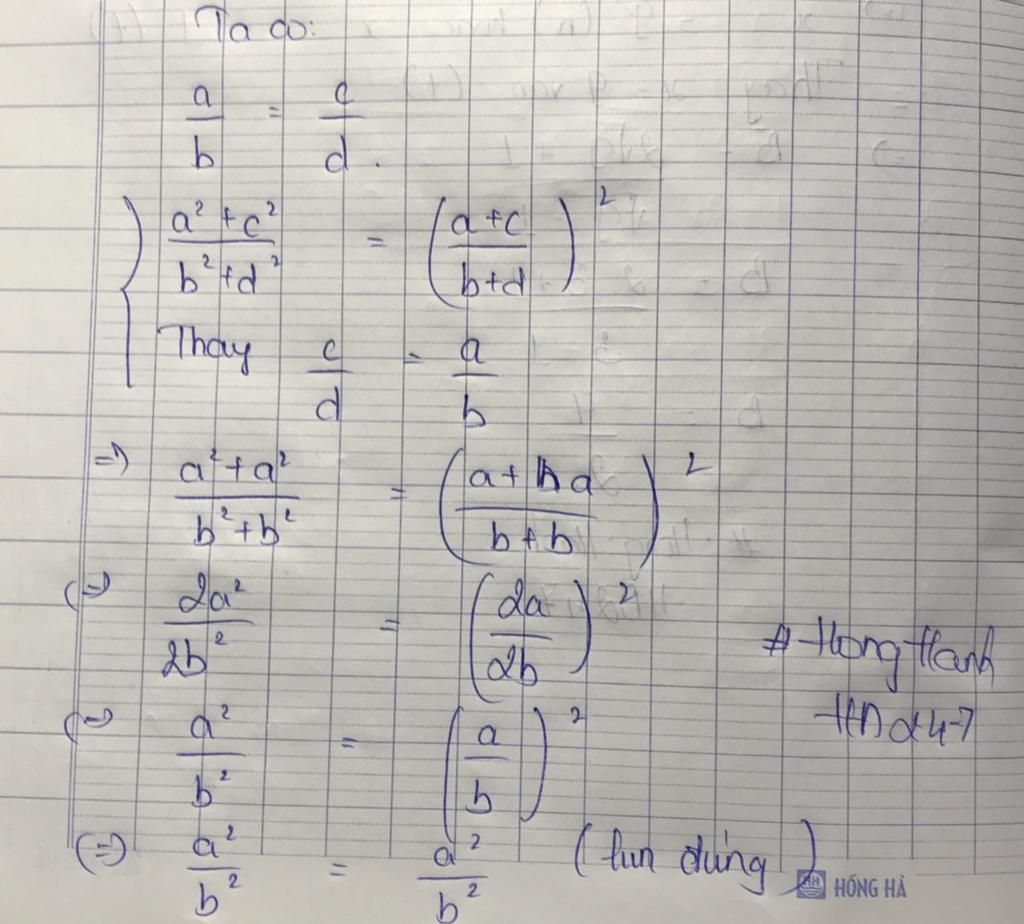 Ta có:
a/b = c/d.
{ (a² + c²)/(b² + d²) = ((a + c)/(b + d))²
Thay c/d = a/b
=) (a² + a²)/(b² + b²) = ((a + a)/(b + b))²
(=) 2a²/2b² = (2a/2b)²
(=) a²/b² = (a/b)²
(=) a²/b² = a²/b² (lun đúng)
HH HỒNG HÀ